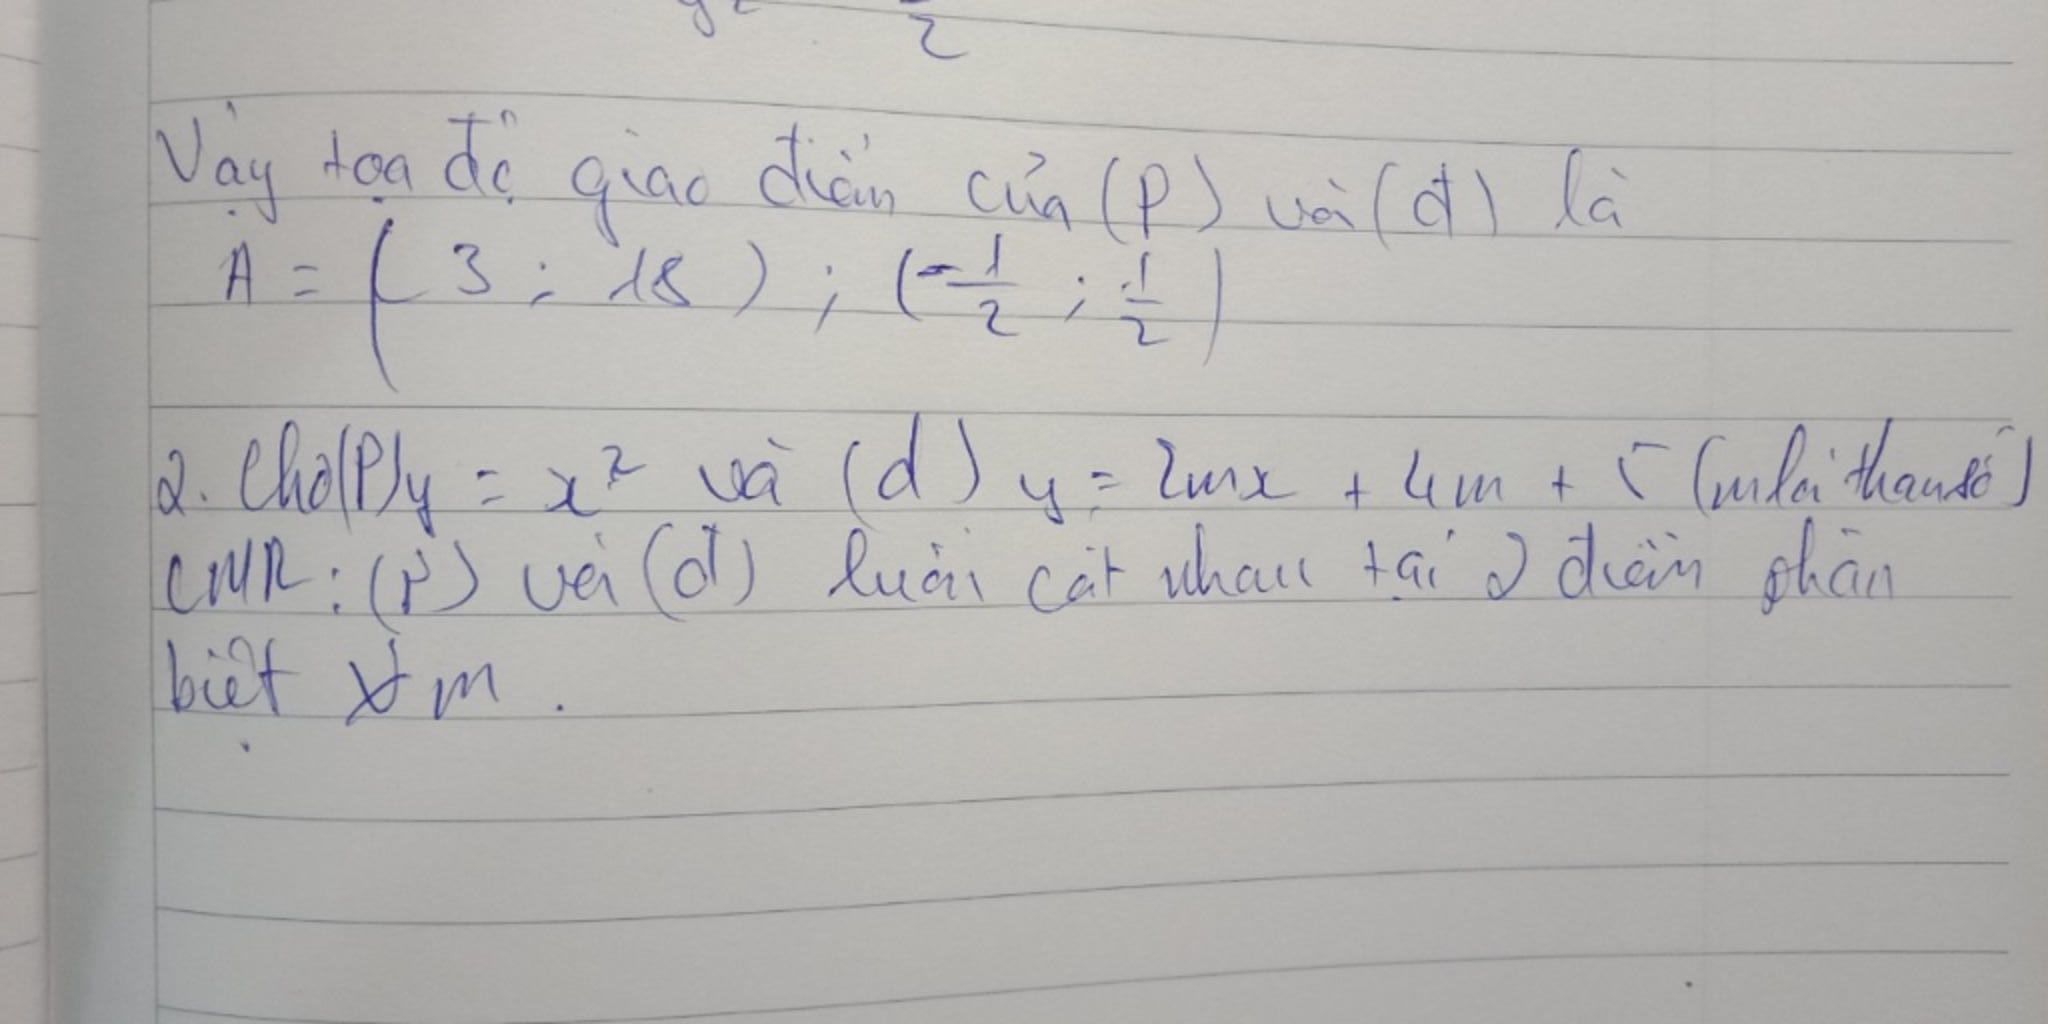 y = 2
Vậy tọa độ giao điểm của (P) và (đ) là
A = ( 3 ; 18 ) ; (-1/2 ; 1/2)
2. Cho (P) y = x² và (d) y = 2mx + 4m + 5 (m là tham số)
CMR : (P) và (đ) luôn cắt nhau tại 2 điểm phân
biệt ∀ m .